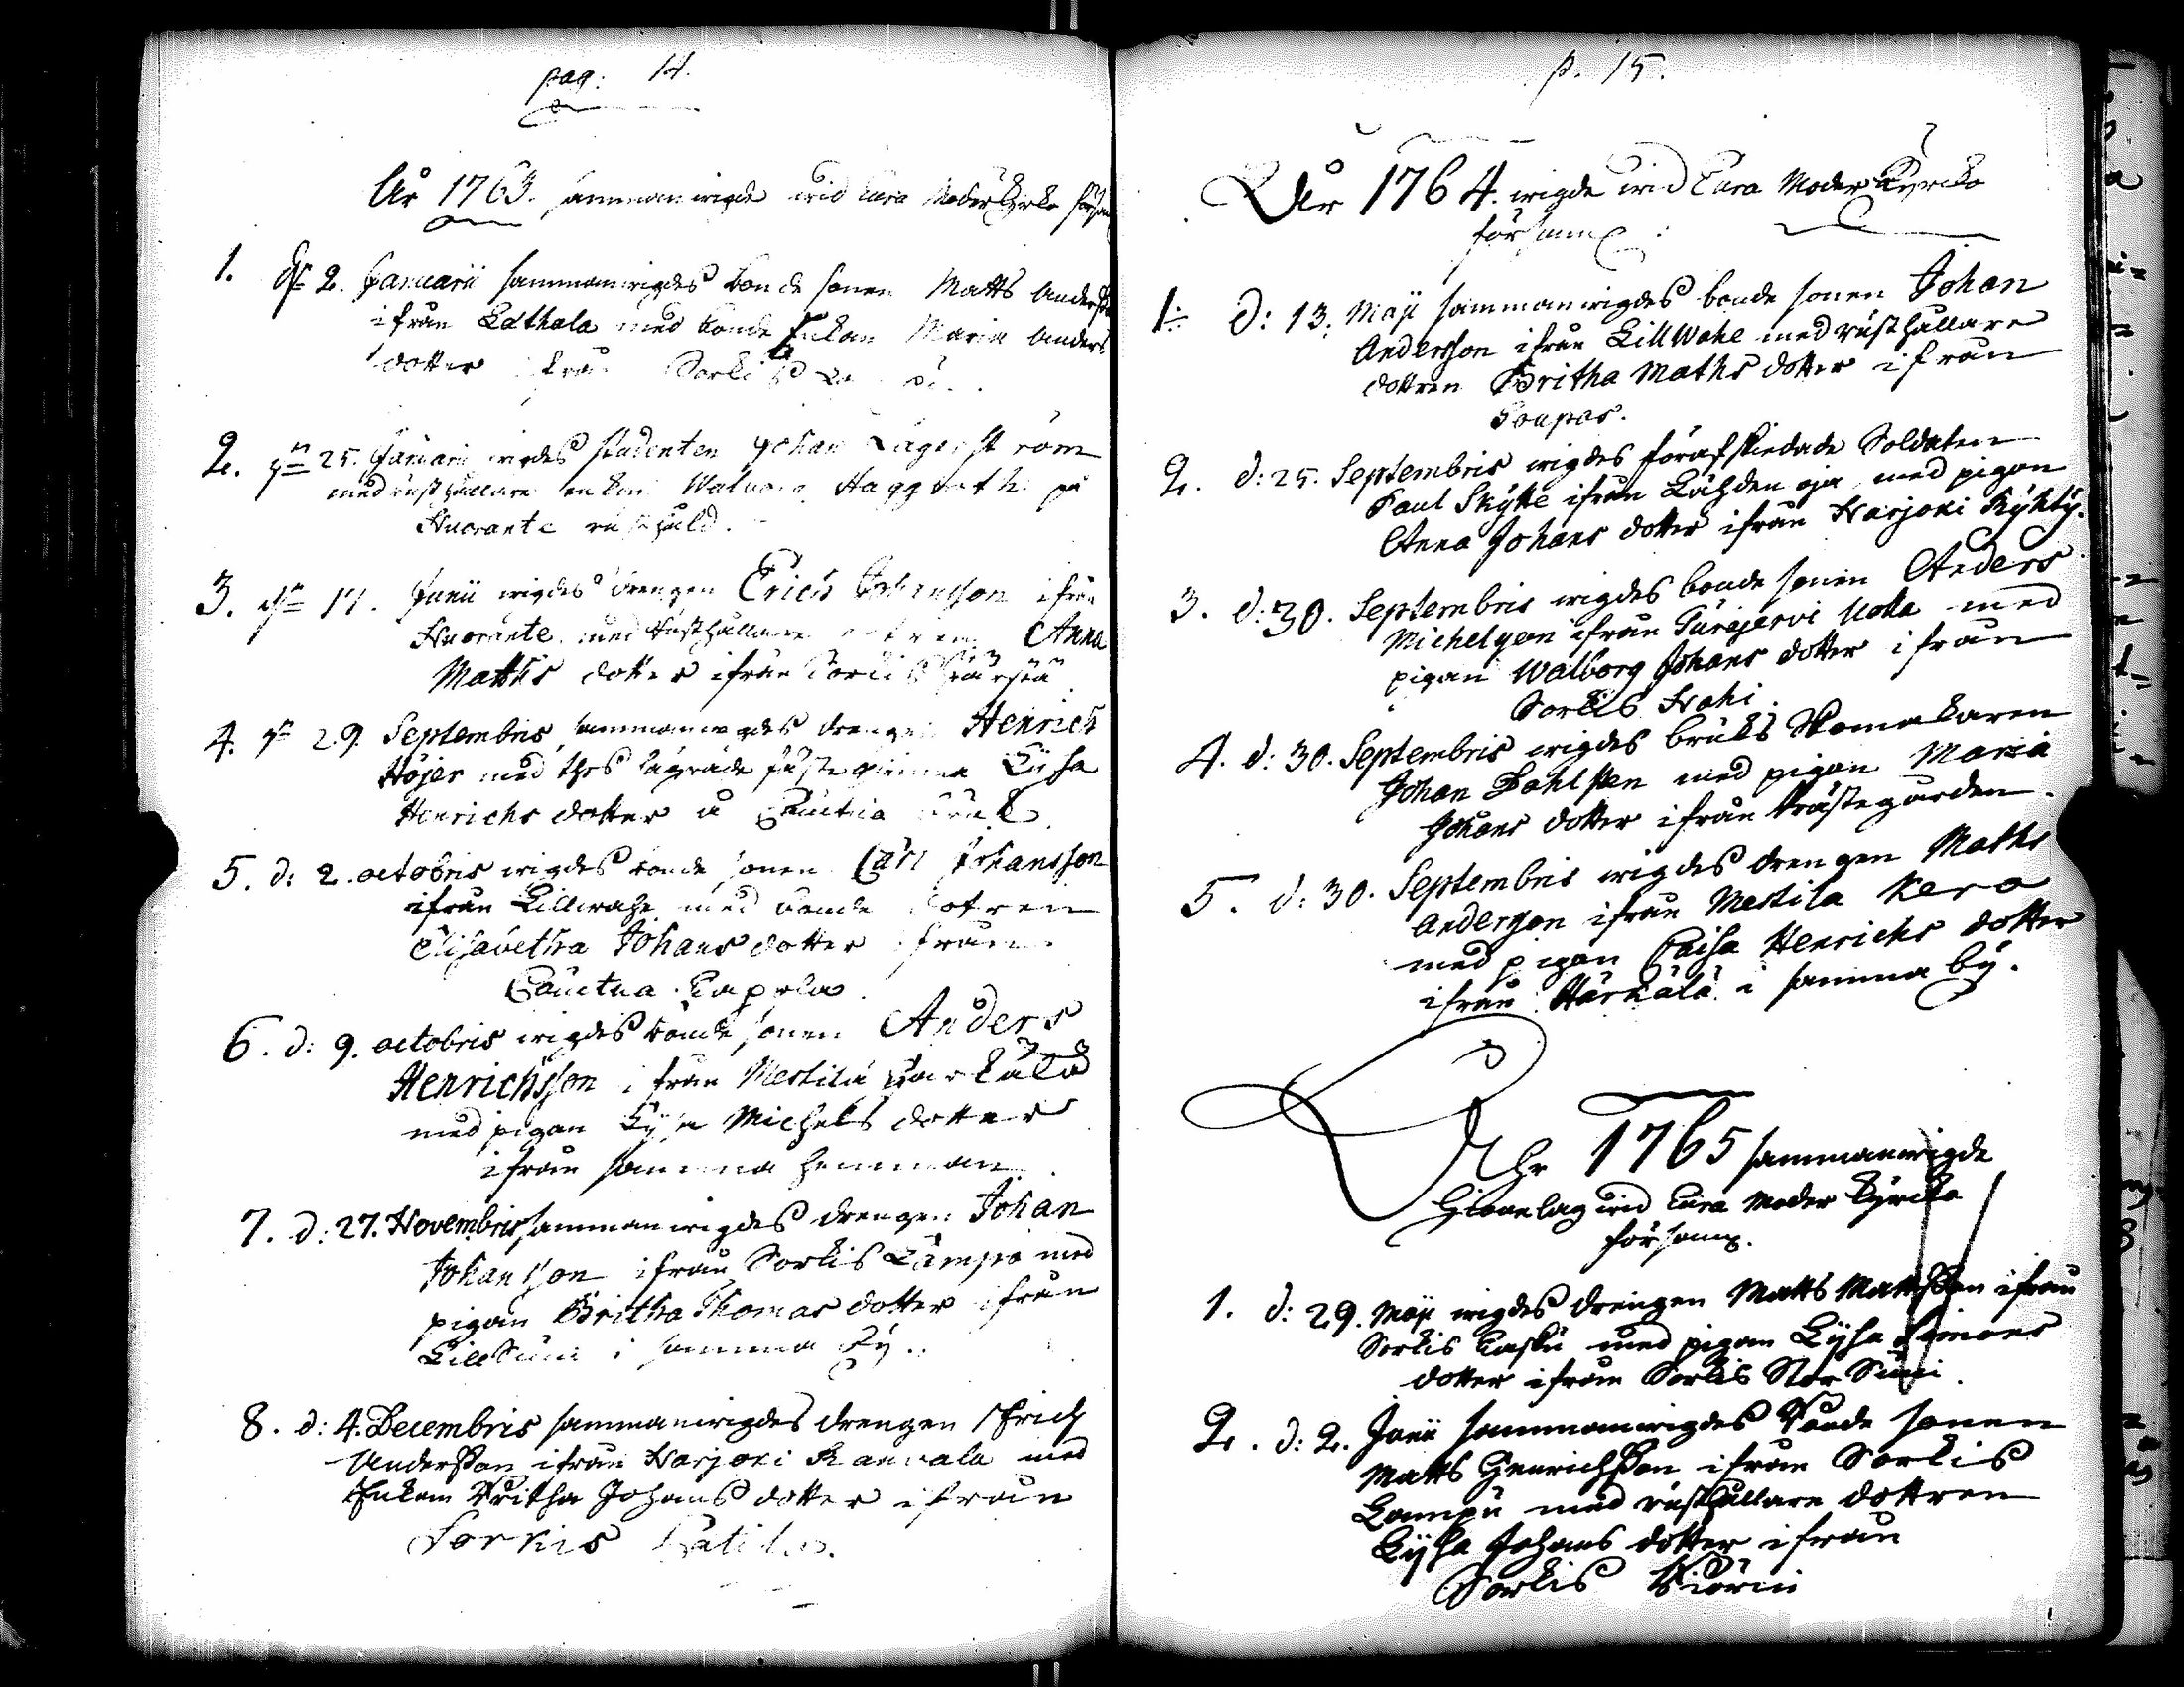 pag: 14.
År 1763. sammanwigde wid Eura Moderkyrko
1. dn 2. Januarii sammanwigdes bonde sonen Matts Andersson
ifrån Lathala med bonde Enkan Maria Anders
dotter ifrån Sorkis
2. dn 25. Januarii wigdes studenten Johan Lagerström
med rusthållare enkan Walborg Haggreth på
Huorante rusthåld.
3. dn 17. Junii wigdes drengen Erich Johansson ifrån
Huorante med Rusthållare dotren Anna
Matths dotter ifrån Sorkis
4. dn 29. Septembris sammanwigdes drengen Henrich
Höjer med thes lägrade fästeqvinna Lijsa
Henrichs dotter å Cautua bruk
5. d: 2. octobris wigdes bonde sonen Carl Johansson
ifrån Lillwahe med bonde dotren
Elisabetha Johans dotter ifrån
Cautua Capela.
6. d: 9. octobris wigdes bonde sonen Anders
Henrichsson ifrån Mestila Härkälä
med pigan Lijsa Michels dotter
ifrån samma hemman.
7. d: 27. Novembris sammanwigdes drengen Johan
Johansson ifrån Sorkis Lampo med
pigan Britha Thomas dotter ifrån
Lill Suni i samma by.
8. d: 4. Decembris sammanwigdes drengen Erich
Andersson ifrån Harjoki Kannala med
Enkan Britha Johans dotter ifrån
Sorkis
p. 15.
Åhr 1764. wigde wid Eura Moder Kyrcko
församl:
1: d: 13. Maji sammanwigdes bonde sonen Johan
Andersson ifrån Lill Wahe med rusthållare
dottren Britha Maths dotter ifrån
Soupas.
2. d: 25. Septembris wigdes förafskiedade Soldaten
Paul Skytte ifrån Löhden oja med pigan
Anna Johans dotter ifrån Harjoki Kyhty.
3. d: 30. Septembris wigdes bonde sonen Anders
Michelsson ifrån Turajervi Uota med
pigan Walborg Johans dotter ifrån
Sorkis Hahi.
4. d: 30. Septembris wigdes bruks Skomakaren
Johan Dahlsten med pigan Maria
Johans dotter ifrån Prästegården.
5. d: 30. Septembris wigdes drengen Maths
Andersson ifrån Mestila Kero
med pigan Caisa Henrichs dotter
ifrån Härkälä i samma by.
Åhr 1765 sammanwigde
Gionelag wid Eura Moder Kyrcko
församl.
1. d: 29. Maji wigdes drengen Matts Mattsson ifrån
Sorkis Kasku med pigan Lijsa Simons
dotter ifrån Sorkis Stor Suni.
2. d: 2. Junii sammanwigdes Bonde sonen
Matts Henrichsson ifrån Sorkis
Lampu med rusthållare dottren
Lijsa Johans dotter ifrån
Sorkis